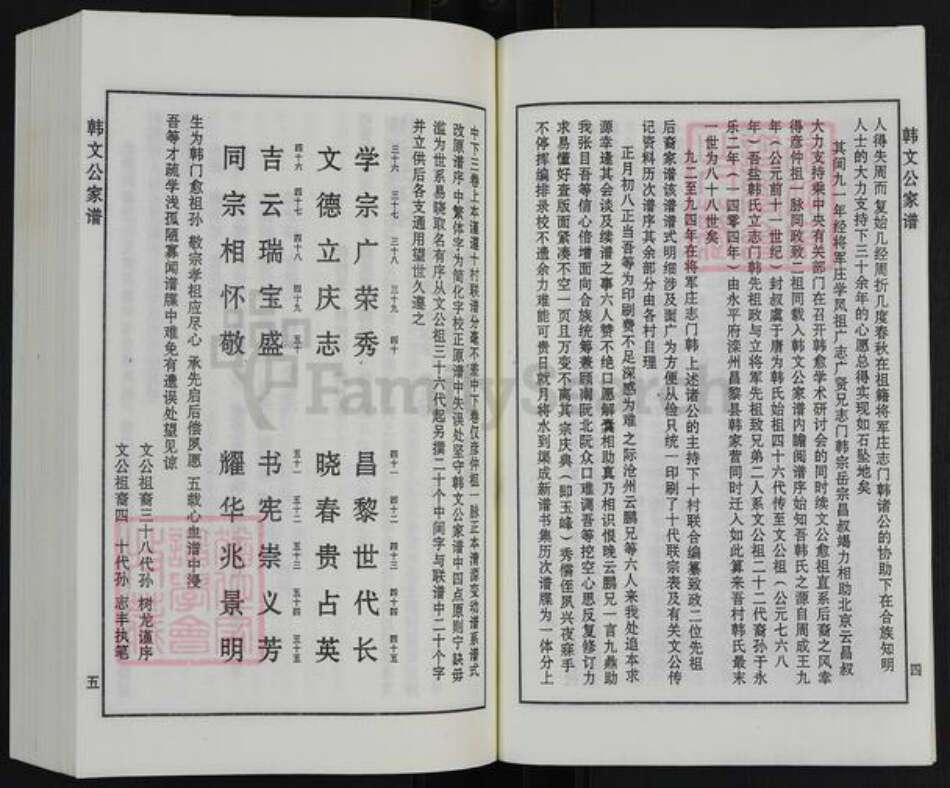 韩文公家谱
人得失周而复始几经周折几度春秋在祖籍将军庄志门韩诸公的协助下在合族知明
人士的大力支持下三十余年的心愿总得实现如石坠地矣
其间九一年经将军庄学凤祖广志广贤兄志门韩宗岳宗昌叔竭力相助北京云昌叔
大力支持乘中央有关部门在召开韩愈学术研讨会的同时续文公愈祖直系后裔之风幸
得彦仲祖一脉同政致二祖同载入韩文公家谱内瞻阅谱序始知吾韩氏之源自周成王九
年（公元前十一世纪）封叔虞于唐为韩氏始祖四十六代传至文公祖（公元七六八
年）吾盐韩氏立志门韩先祖政与立将军先祖致兄弟二人系文公祖二十二代裔孙于永
乐二年（一四零四年）由永平府滦州昌黎县韩家营同时迁人如此算来吾村韩氏最末
一世为八十八世矣
九二至九四年在将军庄志门韩上述诸公的主持下十村联合编纂致政二位先祖
后裔家谱该谱谱式明细涉及面广为方便从俭只统一印刷了十代联宗表及有关文公传
记资料历次谱序其余部分由各村自理
正月初八正当吾等为印刷费不足深感为难之际沧州云鹏兄等六人来我处追本求
源幸逢其会谈及续谱之事六人赞不绝口愿解囊相助真乃相识恨晚云鹏兄一言九鼎助
我张目吾等信心倍增面向合族统筹兼顾南阮北阮众口难调吾等挖空心思反复修订力
求易懂好查版面紧凑不空一页且万变不离其宗庆典（即玉峰）秀儒侄夙兴夜寐手
不停挥编排录校不遗余力难能可贵日就月将水到渠成新谱书集历次谱牒为一体分上
四
韩文公家谱
中下三卷上本谨遵十村联谱分毫不紊中下卷仅彦仲祖一脉正本清源变动谱系谱式
改原谱序中繁体字为简化字校正原谱中失误处坚守韩文公家谱中四点原则宁缺毋
滥为世系易晓取名有序从文公祖三十六代起另撰二十个中间字与联谱中二十个字
并立供后各支通用望世久遵之
三十六 三十七 三十八 三十九 四十 四十一 四十二 四十三 四十四 四十五
学宗广荣秀 昌黎世代长
文德立庆志 晓春贵占英
四十六 四十七 四十八 四十九 五十 五十一 五十二 五十三 五十四 五十五
吉云瑞宝盛 书宪崇义芳
同宗相怀敬 耀华兆景明
生为韩门愈祖孙 敬宗孝祖应尽心 承先启后偿夙愿 五载心血谱中浸
吾等才疏学浅孤陋寡闻谱牒中难免有遗误处望见谅
文公祖裔三十八代孙 树龙谨序
文公祖裔四十代孙 志丰执笔
五